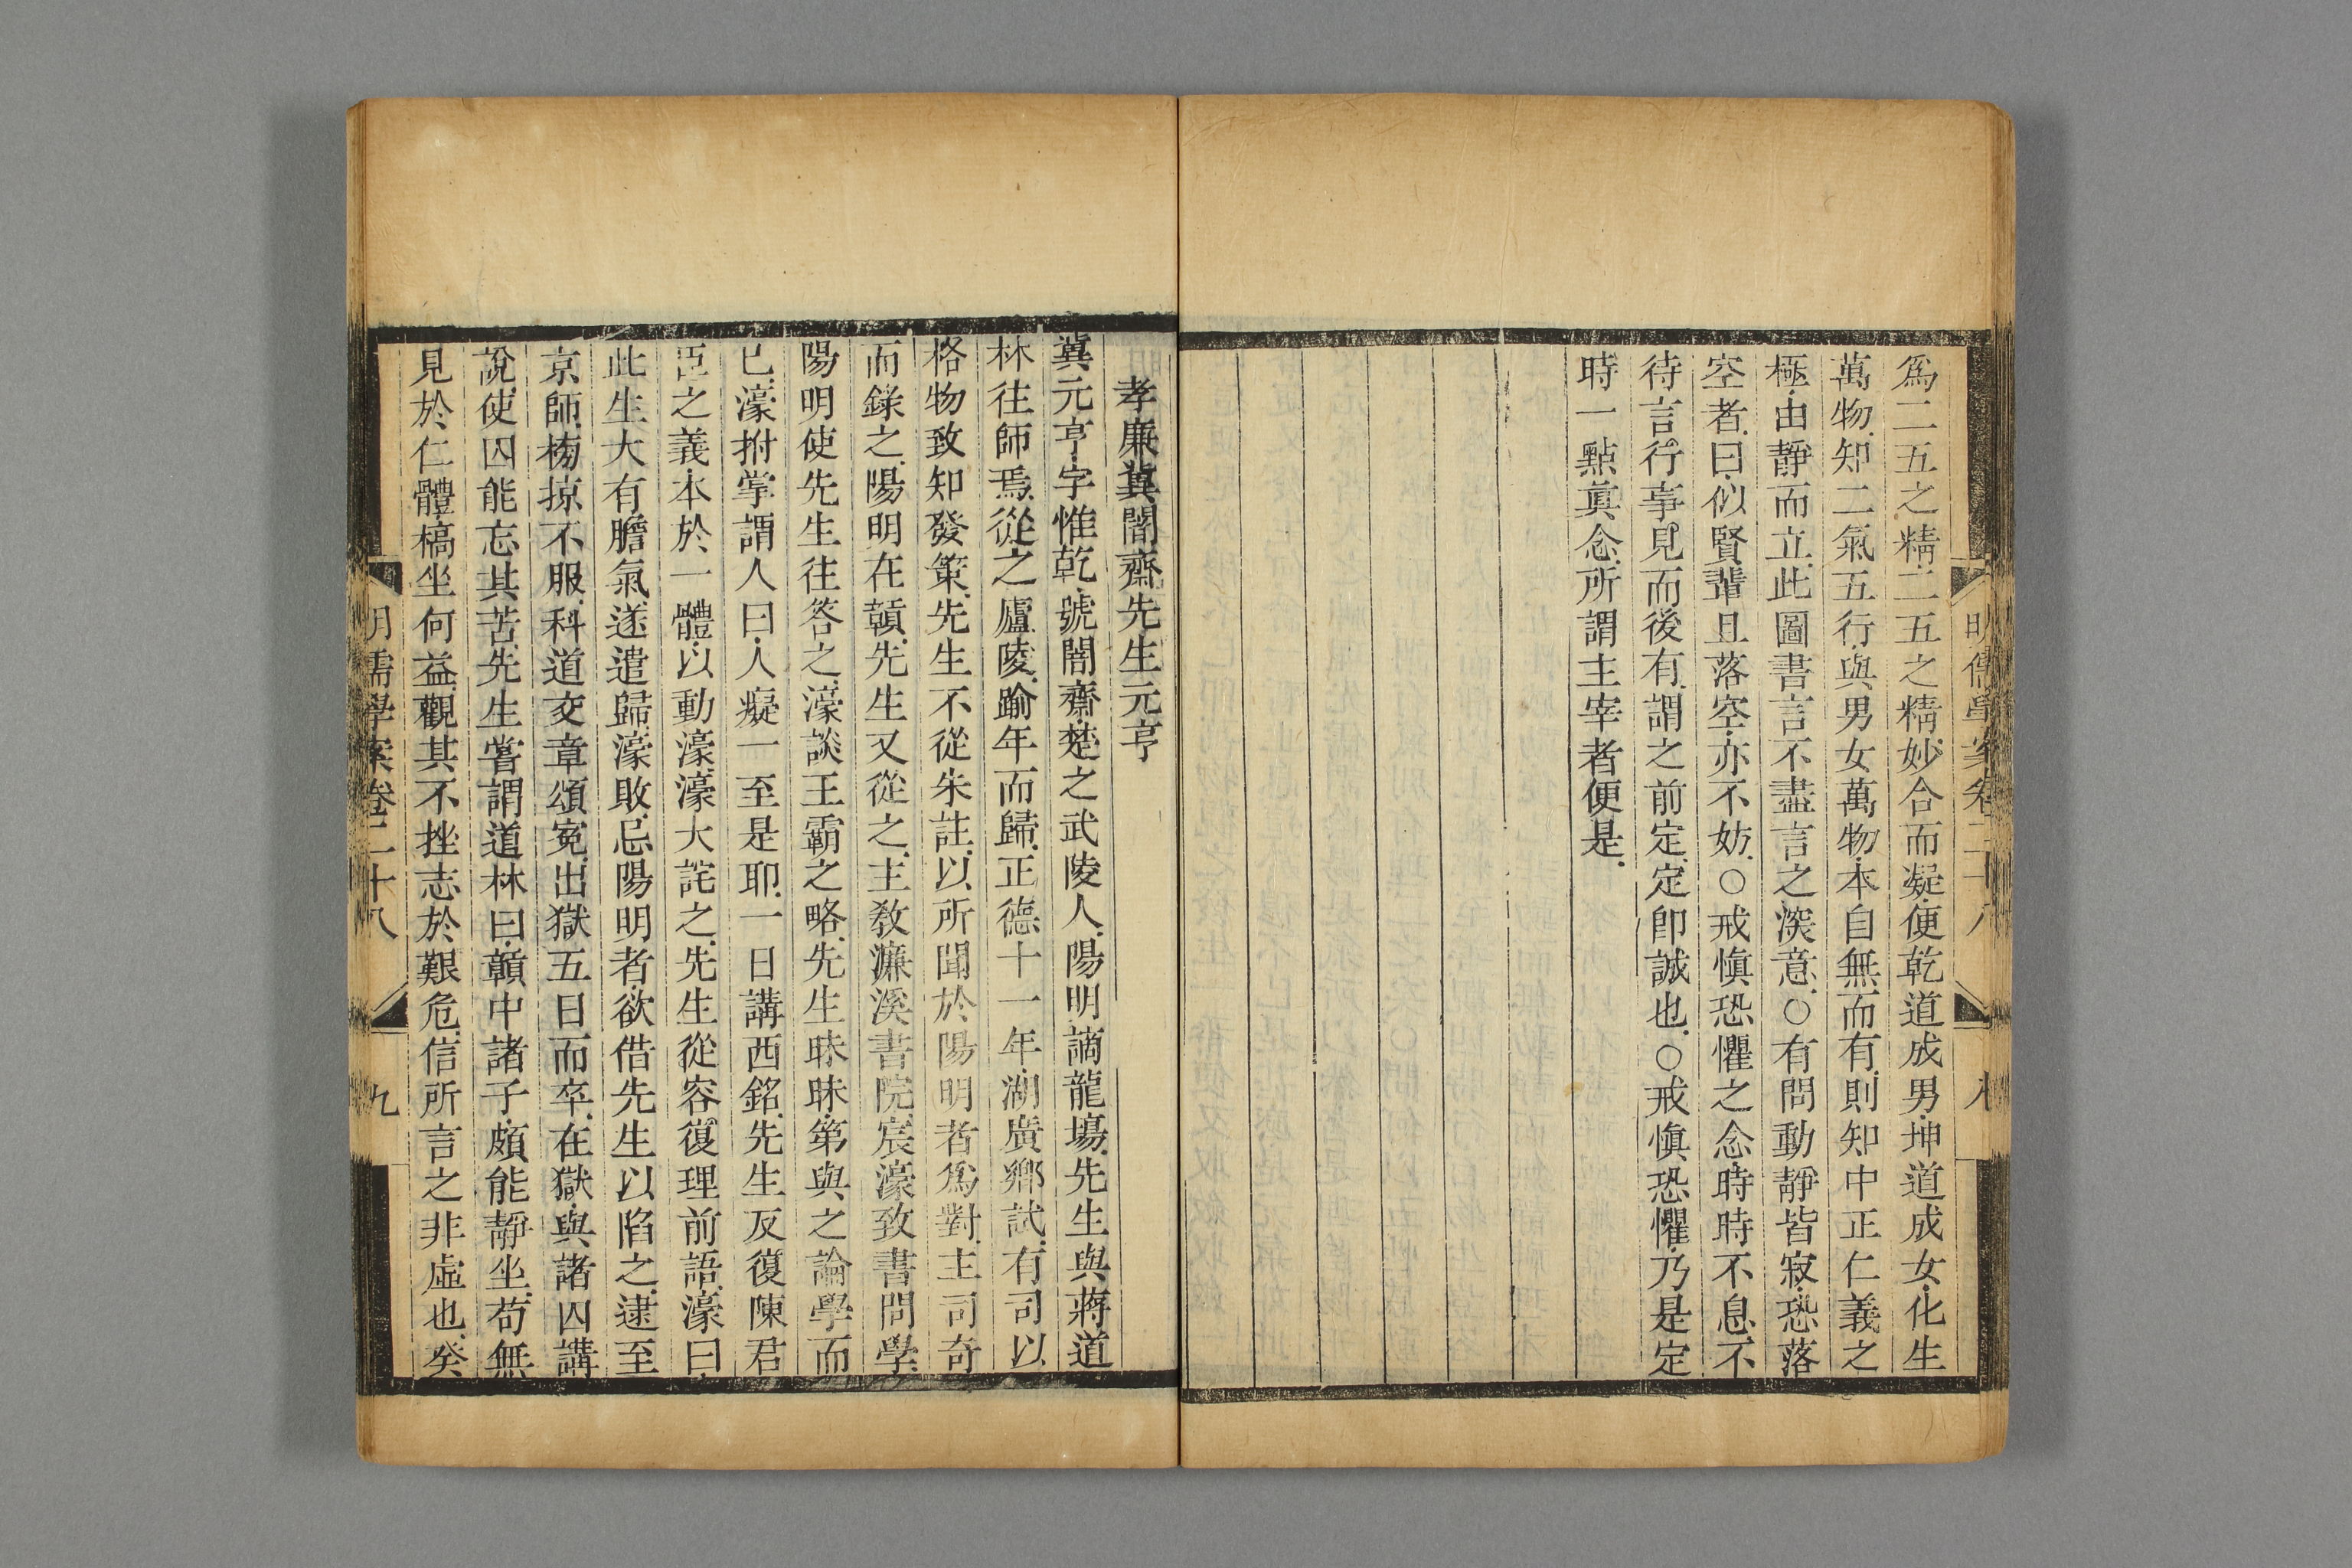 爲二五之精二五之精妙合而凝便乾道成男坤道成女化生
萬物知二氣五行與男女萬物本自無而有則知中正仁義之
極由靜而立此圖書言不盡言之深意○有問動靜皆寂恐落
空者曰似賢輩且落空亦不妨○戒慎恐懼之念時時不息不
待言行事見而後有謂之前定定卽誠也○戒慎恐懼乃是定
時一點眞念所謂主宰者便是
明儒學案卷二十八
孝廉冀闇齋先生元亨
冀元亨字惟乾號闇齋楚之武陵人陽明謫龍場先生與蔣道
林往師焉從之廬陵踰年而歸正德十一年湖廣鄉試有司以
格物致知發策先生不從朱註以所聞於陽明者爲對主司奇
而錄之陽明在贑先生又從之主敎濂溪書院宸濠致書問學
陽明使先生往答之濠談王霸之略先生昧昧第與之論學而
已濠拊掌謂人曰人癡一至是耶一日講西銘先生反復陳君
臣之義本於一體以動濠濠大詫之先生從容復理前語濠曰
此生大有膽氣遂遣歸濠敗忌陽明者欲借先生以陷之逮至
京師榜掠不服科道交章頌冤出獄五日而卒在獄與諸囚講
說使囚能忘其苦先生嘗謂道林曰贑中諸子頗能靜坐苟無
見於仁體槁坐何益觀其不挫志於艱危信所言之非虛也癸
明儒學案卷二十八
九